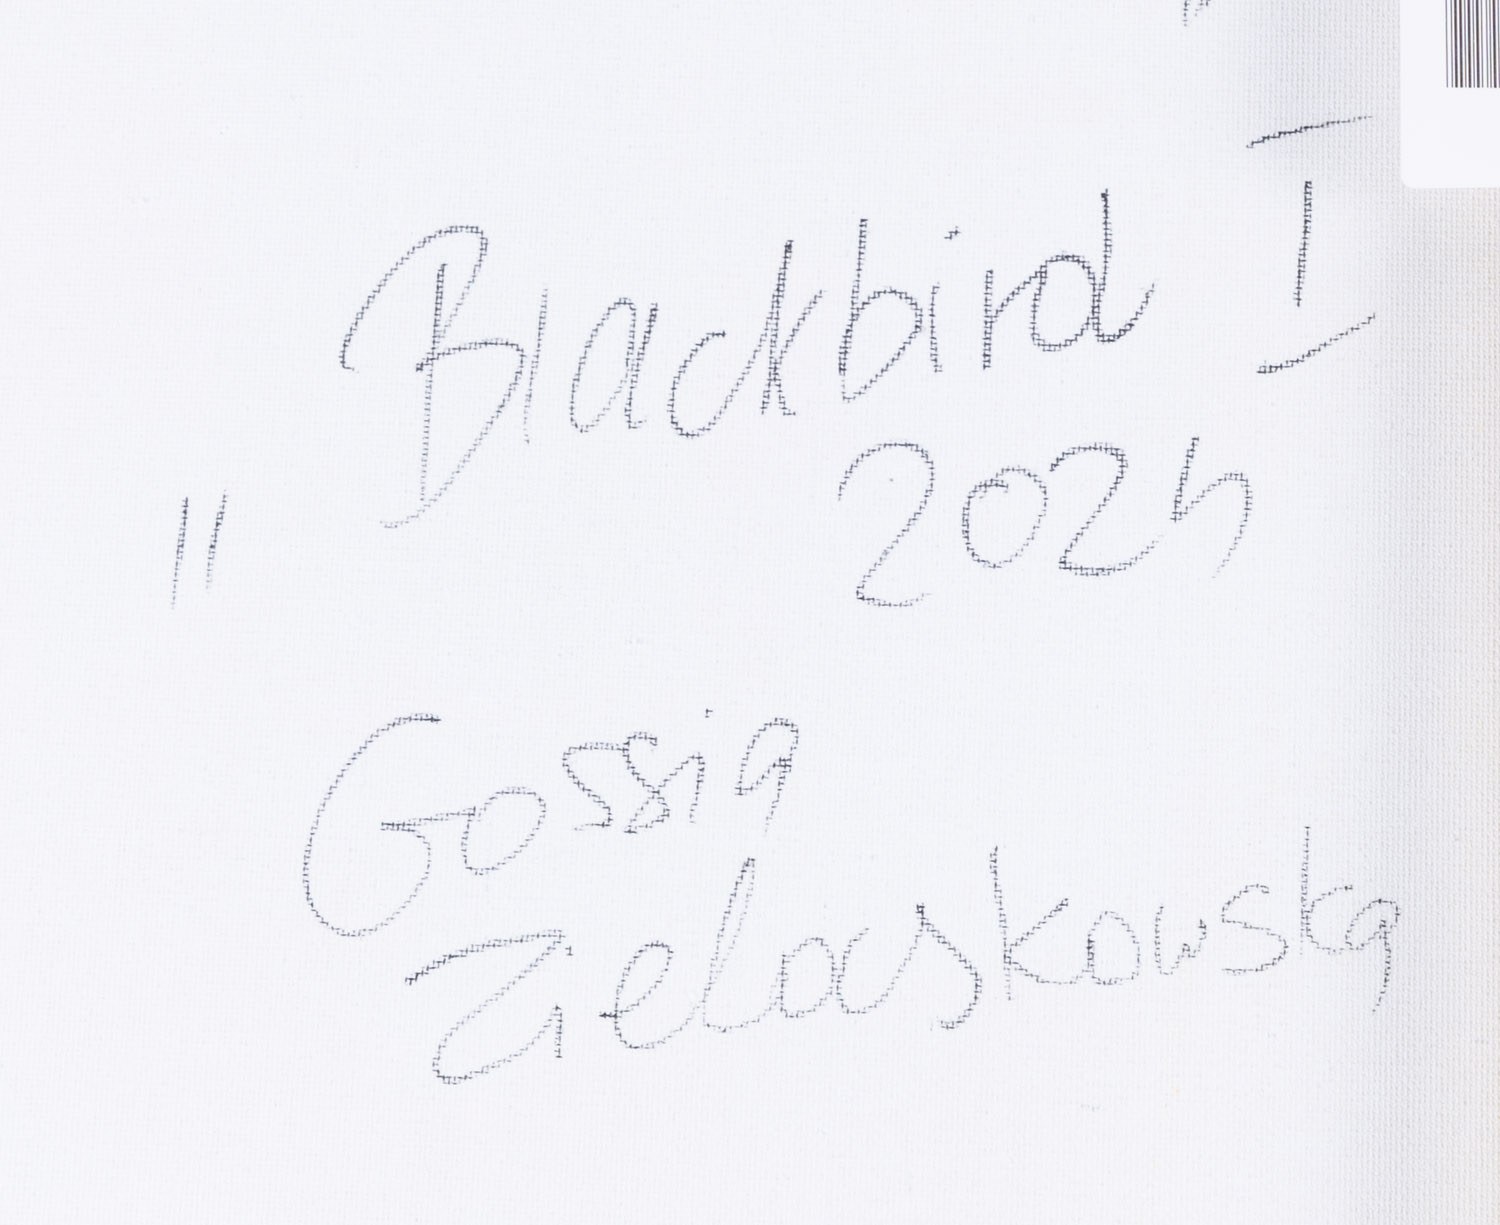 „Blackbird I"
2024
Gossia
Zielaskowska